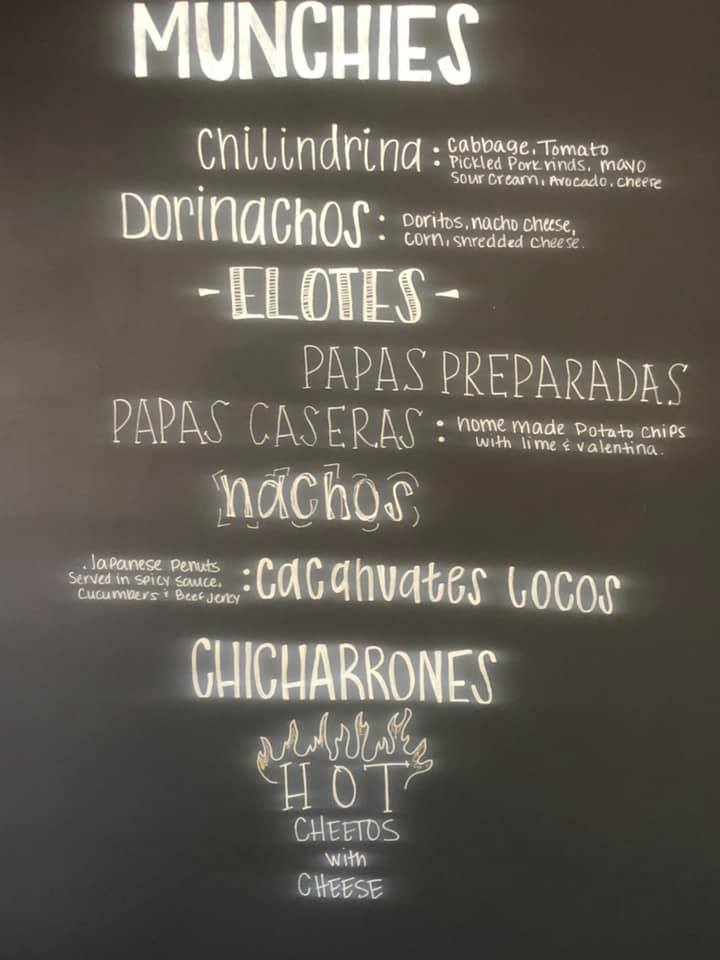 MUNCHIES
Chilindrina : Cabbage, Tomato
Pickled Pork rinds, mayo
Sour Cream, Avocado, cheese
DORINACHOS : Doritos, nacho cheese,
corn, shredded cheese.
- ELOTES -
PAPAS PREPARADAS
PAPAS CASERAS : home made Potato chips
with lime & valentina.
nachos
Japanese Penuts
Served in spicy sauce,
Cucumbers & Beef Jerky
: Cacahuates Locos
CHICHARRONES
HOT
CHEETOS
with
CHEESE